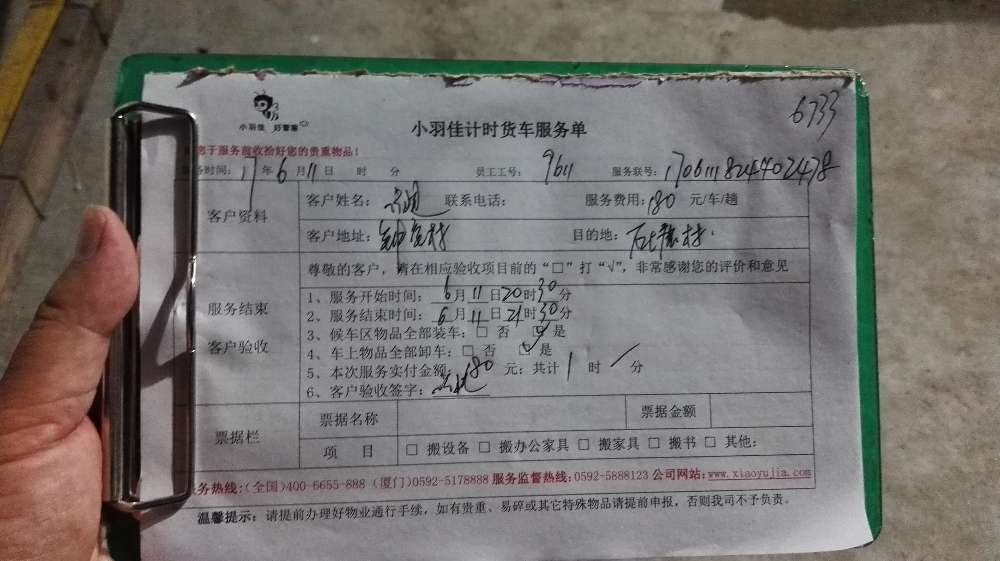 6733
小羽佳 好管家
小羽佳计时货车服务单
您于服务前收拾好您的贵重物品!
务时间: 17年 6月 11日 时 分 员工工号: 9611 服务联号: 1706111824402478
客户资料
客户姓名: 联系电话: 服务费用: 180 元/车/趟
客户地址: 目的地:
尊敬的客户,请在相应验收项目前的“□”打“√”,非常感谢您的评价和意见
服务结束
客户验收
1、服务开始时间: 6月 11日 20时 30分
2、服务结束时间: 6月 11日 21时 30分
3、候车区物品全部装车: □ 否 ☑ 是
4、车上物品全部卸车: □ 否 □ 是
5、本次服务实付金额: 180 元; 共计 1 时 / 分
6、客户验收签字:
票据栏
票据名称 票据金额
项 目 □ 搬设备 □ 搬办公家具 □ 搬家具 □ 搬书 □ 其他:
务热线:(全国)400-6655-888 (厦门)0592-5178888 服务监督热线:0592-5888123 公司网站:www.xiaoyujia.com
温馨提示: 请提前办理好物业通行手续,如有贵重、易碎或其它特殊物品请提前申报,否则我司不予负责。